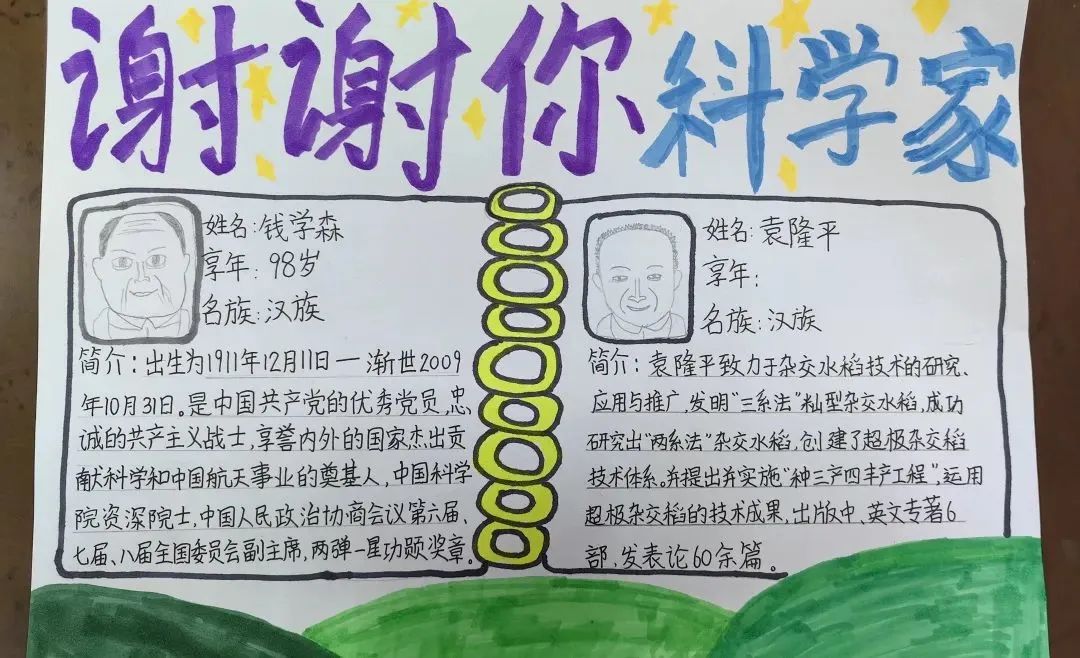 谢谢你科学家
姓名:钱学森
享年:98岁
名族:汉族
简介:出生为1911年12月11日一渐世2009
年10月31日。是中国共产党的优秀党员,忠
诚的共产主义战士,享誉内外的国家杰出贡
献科学和中国航天事业的奠基人,中国科学
院资深院士,中国人民政治协商会议第六届、
七届、八届全国委员会副主席,两弹一星功勋奖章。
姓名:袁隆平
享年:
名族:汉族
简介:袁隆平致力于杂交水稻技术的研究、
应用与推广,发明"三系法"籼型杂交水稻,成功
研究出"两系法"杂交水稻,创建了超极杂交稻
技术体系。并提出并实施"种三产四丰产工程",运用
超极杂交稻的技术成果,出版中、英文专著6
部,发表论60余篇。